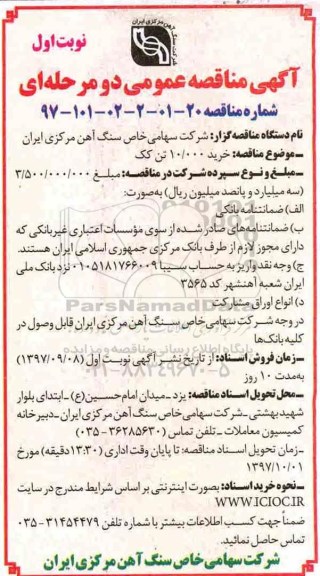 شرکت سنگ آهن مرکزی ایران
نوبت اول
آگهی مناقصه عمومی دو مرحله‌ای
شماره مناقصه ۲۰-۰۱-۲-۰۲-۱۰۱-۹۷
نام دستگاه مناقصه گزار: شرکت سهامی خاص سنگ آهن مرکزی ایران
ـ موضوع مناقصه: خرید ۱۰/۰۰۰ تن کک
ـ مبلغ و نوع سپرده شرکت در مناقصه: مبلغ ۳/۵۰۰/۰۰۰/۰۰۰
(سه میلیارد و پانصد میلیون ریال) به‌صورت:
الف) ضمانتنامه بانکی
ب) ضمانتنامه‌های صادر شده از سوی مؤسسات اعتباری غیربانکی که
دارای مجوز لازم از طرف بانک مرکزی جمهوری اسلامی ایران هستند.
ج) وجه نقد واریز به حساب سیبا ۰۱۰۵۱۸۱۷۶۶۰۰۹ نزد بانک ملی
ایران شعبه آهنشهر کد ۳۵۶۵
د) انواع اوراق مشارکت
در وجه شرکت سهامی خاص سنگ آهن مرکزی ایران قابل وصول در
کلیه بانک‌ها
ـ زمان فروش اسناد: از تاریخ نشر آگهی نوبت اول (۱۳۹۷/۰۹/۰۸)
به‌مدت ۱۰ روز
ـ محل تحویل اسناد مناقصه: یزد ـ میدان امام حسین (ع) ـ ابتدای بلوار
شهید بهشتی ـ شرکت سهامی خاص سنگ آهن مرکزی ایران ـ دبیرخانه
کمیسیون معاملات ـ تلفن تماس (۳۶۲۸۵۶۳۰-۰۳۵)
ـ زمان تحویل اسناد مناقصه: تا پایان وقت اداری (۱۳:۳۰دقیقه) مورخ
۱۳۹۷/۱۰/۰۱
ـ نحوه خرید اسناد: بصورت اینترنتی بر اساس شرایط مندرج در سایت
WWW.ICIOC.IR
ضمناً جهت کسب اطلاعات بیشتر با شماره تلفن ۳۱۴۵۴۴۷۹-۰۳۵
تماس حاصل نمائید.
شرکت سهامی خاص سنگ آهن مرکزی ایران
ParsNamadData
پایگاه اطلاع رسانی مناقصه و مزایده
۰۲۱-۸۸۳۴۹۶۷۰-۵